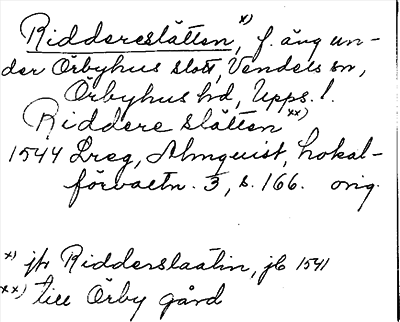 Riddereslätten, x) f. äng un-
der Örbyhus slott, Vendels sn,
Örbyhus hd, Upps. l.
Riddere slätten xx)
1544 Dreg, Almquist, Lokal-
förvaltn. 3, s. 166. orig.
x) jfr Ridderslaatin, jb 1541
xx) till Örby gård